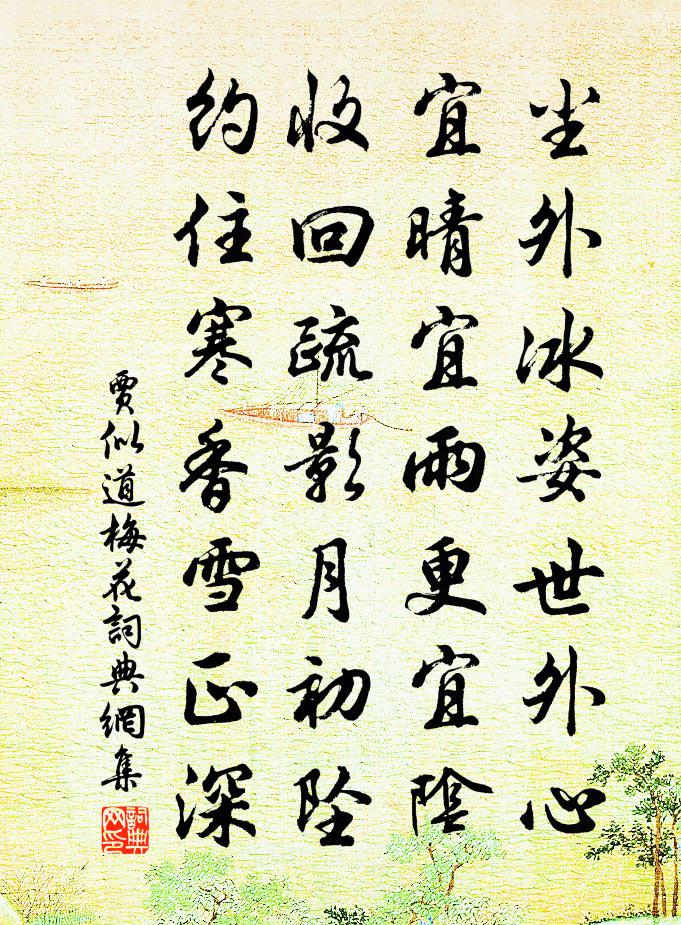 尘外冰姿世外心
宜晴宜雨更宜陰
收回疏影月初墜
約住寒香雪正深
賈似道梅花詞典網集
詞典网印